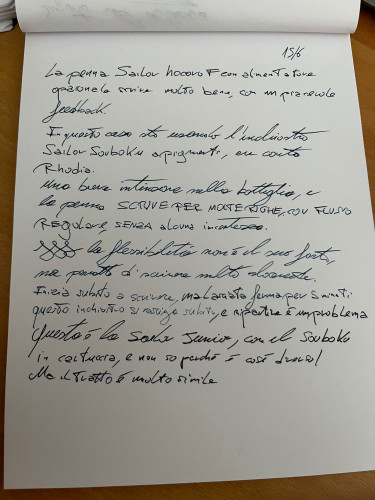 15/6
La penna Sailor hocoro F con alimentatore
opzionale scrive molto bene, con un piacevole
feedback.
In questo caso sto usando l'inchiostro
Sailor Souboku a pigmenti, su carta
Rhodia.
una breve intinzione nella bottiglia, e
la penna SCRIVE PER MOLTE RIGHE, CON FLUSSO
REGOLARE, SENZA alcuna incertezza.
la flessibilità non è il suo forte,
ma permette di scrivere molto
Inizia subito a scrivere, ma lasciata ferma per 5 minuti
questo inchiostro si asciuga subito, e ripartire è un problema
Questa è la Sailor Junior, con el Souboku
in cartuccia, e non so perché è così diverso!
Ma il tratto è molto simile